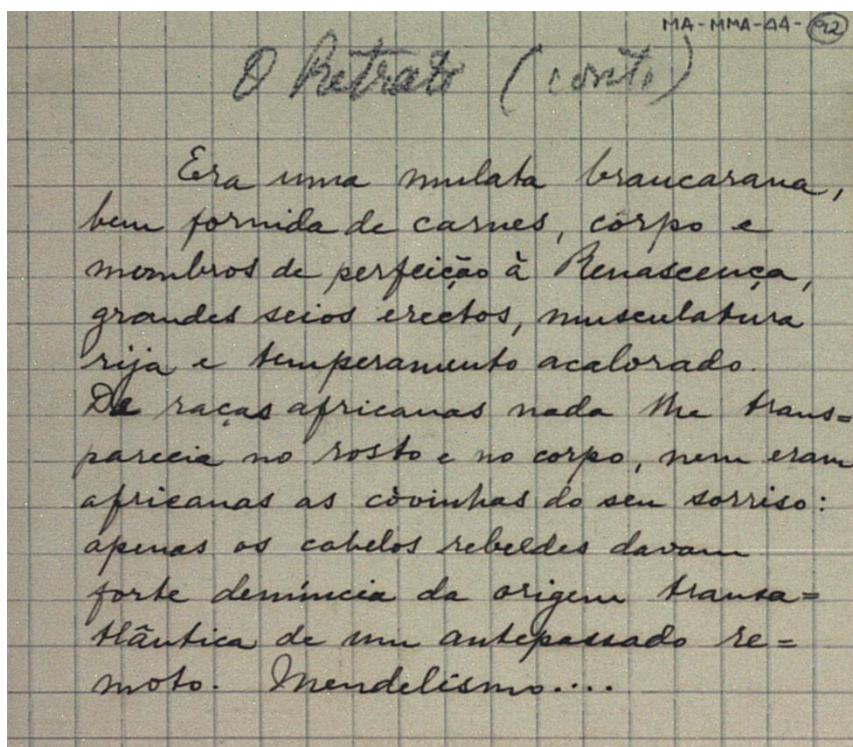 MA-MMA-44-92
O Retrato (conto)
Era uma mulata brancarana,
bem fornida de carnes, côrpo e
membros de perfeição à Renascença,
grandes seios erectos, musculatura
rija e temperamento acalorado.
De raças africanas nada lhe trans=
parecia no rosto e no corpo, nem eram
africanas as còvinhas do seu sorriso:
apenas os cabelos rebeldes davam
forte denúncia da origem transa=
tlântica de um antepassado re=
moto. Mendelismo....